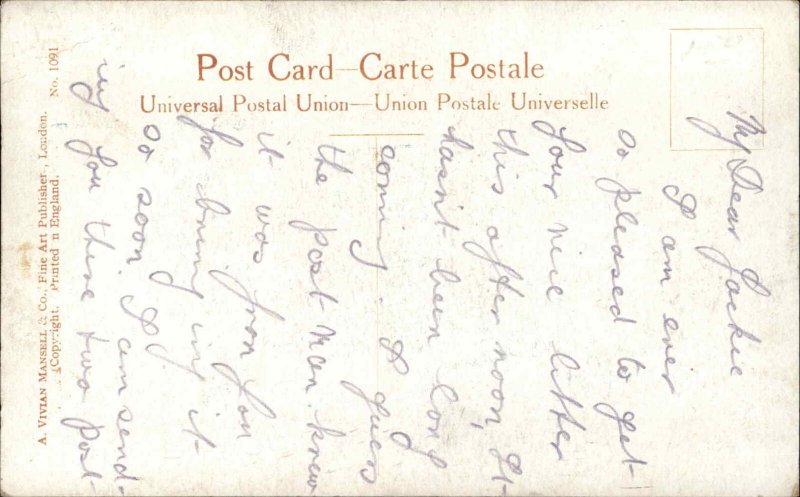 Post Card—Carte Postale
Universal Postal Union—Union Postale Universelle
My Dear Jackie
I am ever
so pleased to get
your nice litter
this after noon, It
hasn't been long
coming. I guess
the post man knew
it was from you
for bring ing it
so soon I am send-
ing you these two post
A. VIVIAN MANSELL & Co., Fine Art Publishers, London. No. 1091
Copyright. Printed in England.